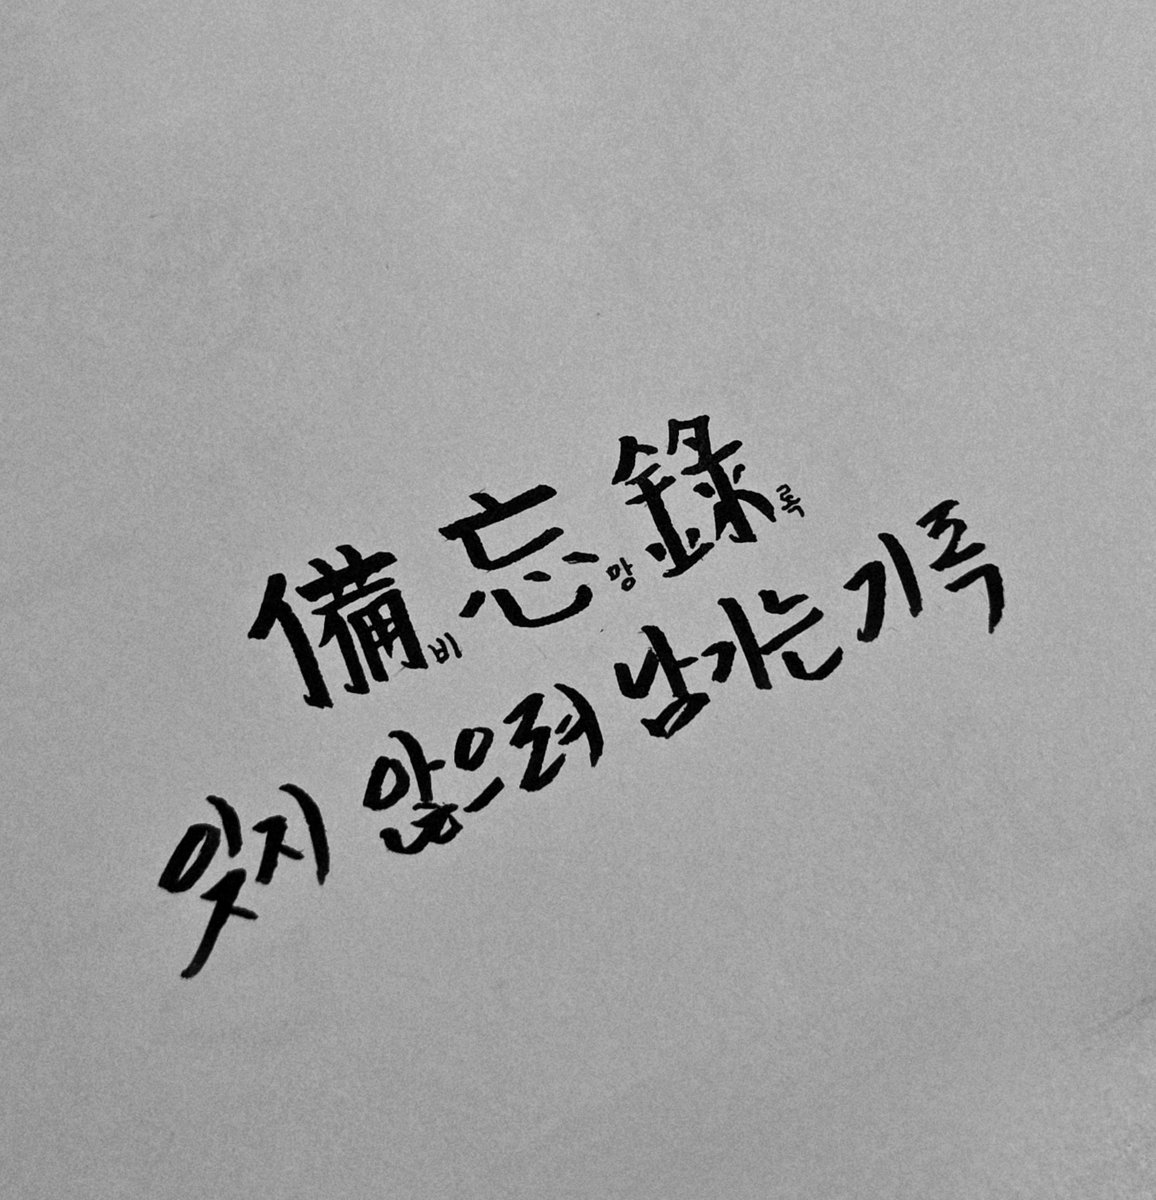 備비 忘망 錄록
잊지 않으려 남기는 기록